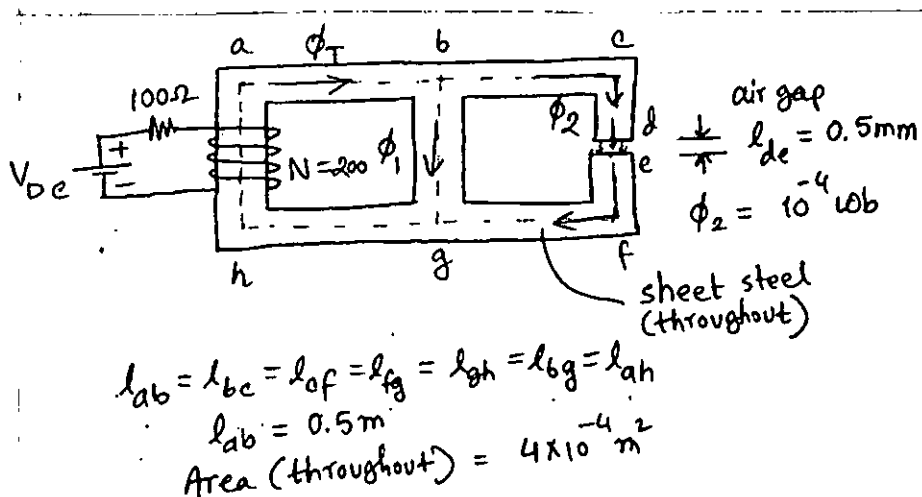 a ϕT b c
100Ω
ϕ2 d
air gap
lde = 0.5mm
VDC + −
N=200 ϕ1
e
ϕ2 = 10^-4 Wb
h g f
sheet steel
(throughout)
lab = lbc = lcf = lfg = lgh = lbg = lah
lab = 0.5m
Area (throughout) = 4×10^-4 m^2